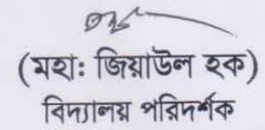 (মহা: জিয়াউল হক)
বিদ্যালয় পরিদর্শক